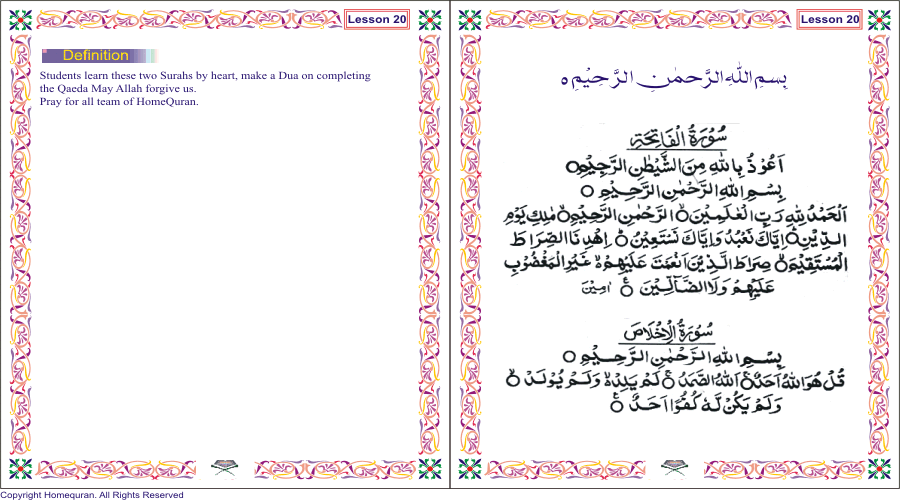 Lesson 20
Definition
Students learn these two Surahs by heart, make a Dua on completing
the Qaeda May Allah forgive us.
Pray for all team of HomeQuran.
Lesson 20
بِسْمِ اللّٰهِ الرَّحْمٰنِ الرَّحِيْمِ ○
سُوْرَةُ الْفَاتِحَةِ
اَعُوْذُ بِاللّٰهِ مِنَ الشَّيْطٰنِ الرَّجِيْمِ ○
بِسْمِ اللّٰهِ الرَّحْمٰنِ الرَّحِيْمِ ○
اَلْحَمْدُ لِلّٰهِ رَبِّ الْعٰلَمِيْنَ ○ الرَّحْمٰنِ الرَّحِيْمِ ○ مٰلِكِ يَوْمِ
الدِّيْنِ ○ اِيَّاكَ نَعْبُدُ وَاِيَّاكَ نَسْتَعِيْنُ ○ اِهْدِنَا الصِّرَاطَ
الْمُسْتَقِيْمَ ○ صِرَاطَ الَّذِيْنَ اَنْعَمْتَ عَلَيْهِمْ ○ غَيْرِ الْمَغْضُوْبِ
عَلَيْهِمْ وَلَا الضَّآلِّيْنَ ○ اٰمِيْنَ
سُوْرَةُ الْاِخْلَاصِ
بِسْمِ اللّٰهِ الرَّحْمٰنِ الرَّحِيْمِ ○
قُلْ هُوَ اللّٰهُ اَحَدٌ ○ اَللّٰهُ الصَّمَدُ ○ لَمْ يَلِدْ ○ وَلَمْ يُوْلَدْ ○
وَلَمْ يَكُنْ لَّهٗ كُفُوًا اَحَدٌ ○
Copyright Homequran. All Rights Reserved